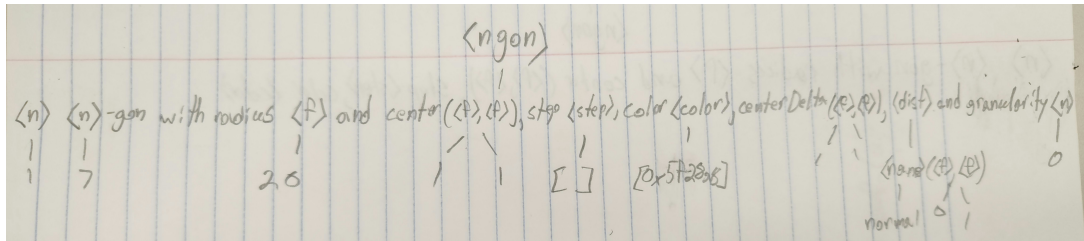 <ngon>
<n> <n>-gon with radius <f> and center(<f>,<f>), step <step>, color <color>, centerDelta(<f>,<f>), <dist> and granularity <n>
1 7 20 1 1 [ ] <name>(<f>,<f>) 0
normal 0 1